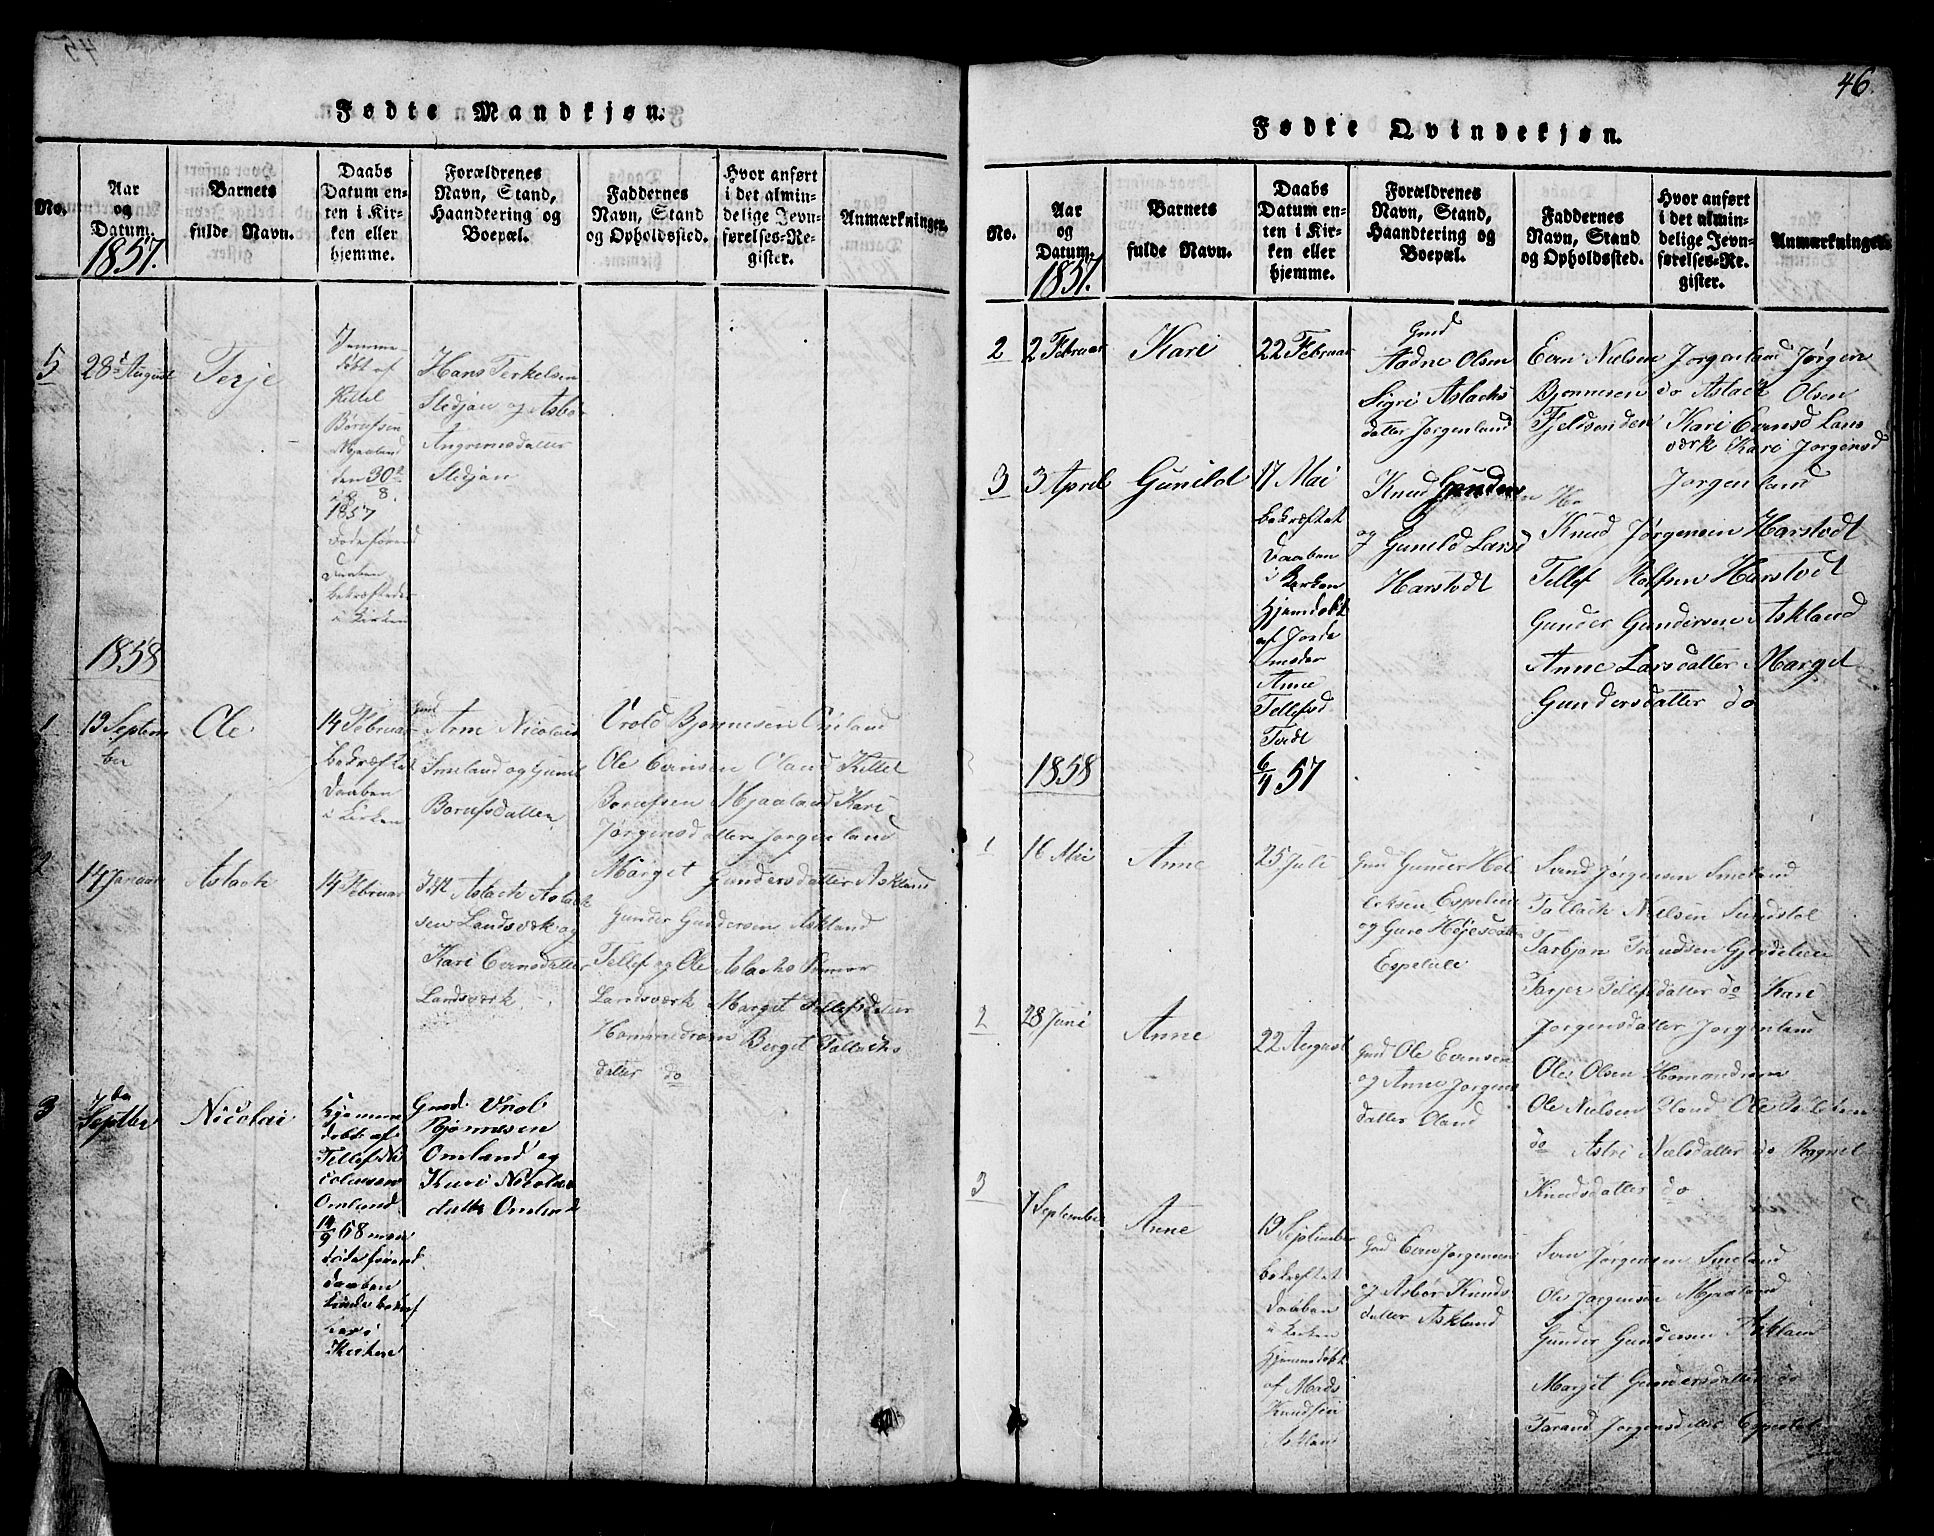 46.
Fødte Mandkjøn.
No.
Aar
og
Datum.
1857.
Barnets
fulde Navn.
Daabs
Datum en-
ten i Kir-
ken eller
hjemme.
Forældrenes
Navn, Stand,
Haandtering og
Boepæl.
Faddernes
Navn, Stand
og Opholdssted.
Hvor anført
i det almin-
delige Jevn-
førelses-Re-
gister.
Anmærkninger.
5
28de August
Terje
Hjemme
døbt af
Kittel
Børufsen
Mjaaland
den 30te
8.
1857
Daaben
bekræftedes
i Kirken
Hans Terkelsen
Sledjan og Asbo
Angremsdatter
Sledjan
1858
1
13 Septem
ber
Ole
14 Februar
Bekræftet
Daaben
i Kirken
Gmd Arne Nicolais
Smeland og Gunil
Borufsdatter
Vrold Bjørnesen Omland
Ole Evensen Oland Kittel
Borufsen Mjaaland Kari
Jørgensdatter Jorgenland
2
14 Januar
Aslach
14 Februar
Aslach Aslach
sen Landsværk og
Kari Evensdatter
Landsværk
Marget Gundersdatter Askland
Gunder Gundersen Askland
Tellef og Ole Aslachs Sønner
Landsværk Marget Tellefsdatter
Hommedrom Berget Tallachs
datter do
3
7de
Septbr
Nicolai
Hjemme
døbt af
Tellef Ni
colaisen
Omland
14/9 58
Daaben
Kirken
Gmd. Vrol
Bjørnesen
Omland og
Kari Nicolai
datter Omland
Fødte Qvindekjøn.
No.
Aar
og
Datum.
1857.
Barnets
fulde Navn.
Daabs
Datum en-
ten i Kir-
ken eller
hjemme.
Forældrenes
Navn, Stand,
Haandtering og
Boepæl.
Faddernes
Navn, Stand
og Opholdssted.
Hvor anført
i det almin-
delige Jevn-
førelses-Re-
gister.
Anmærkninger.
2
2 Februar
Kari
22 Februar
Gmd
Aadne Olsen
Sigri Aslachs
datter Jorgenland
Even Nielsen Jorgenland Jørgen
Bjønnesen do Aslack Olsen
Fjeldsenden Kari Evensd Lans
værk Kari Jorgensd
Jorgenland
3
3 April
Gunild
17 Mai
Bekræftet
Daaben
i Kirken
Hjemdøbt
af Jorde
moder
Anne
Tellefsd
Tvedt
6/4 57
Knud Gunders
og Gunild Larsd
Harstvedt
Knud Jørgensen Harstvedt
Tellef Rolfsen Harstvedt
Gunder Gundersen Askland
Anne Larsdatter Marget
Gundersdatter do
1858
1
16 Mai
Anne
25 Juli
Gmd Gunder Hol
Espelien
og Guro Høyesdatter
Espelie
Svend Jørgensen Smeland
Tallach Nielsen Sundstøl
Tarbjøn Trondsen Gjerdelien
Tarjer Tellefsdatter do Kari
Jorgensdatter Jorgenland
2
28 Juni
Anne
22 August
Gmd Ole Evensen
og Anne Jorgens
datter Oland
Ole Olsen Homandrom
Ole Nielsen Oland Ole
do Astri Nielsdatter do Ragnil
Knudsdatter do
3
7 September
Anne
19 September
Bekræftet
Daaben
i Kirken
Hjemmedøbt
af Mads
Knudsen
Asklan
Gmd Even Jorgensen
og Asbør Knuds
datter Askland
Sven Jørgensen Smeland
Ole Jorgensen Mjaaland
Gunder Gundersen Asklan
Marget Gundersdatter do
Tarand Jorgensdatter Espelie